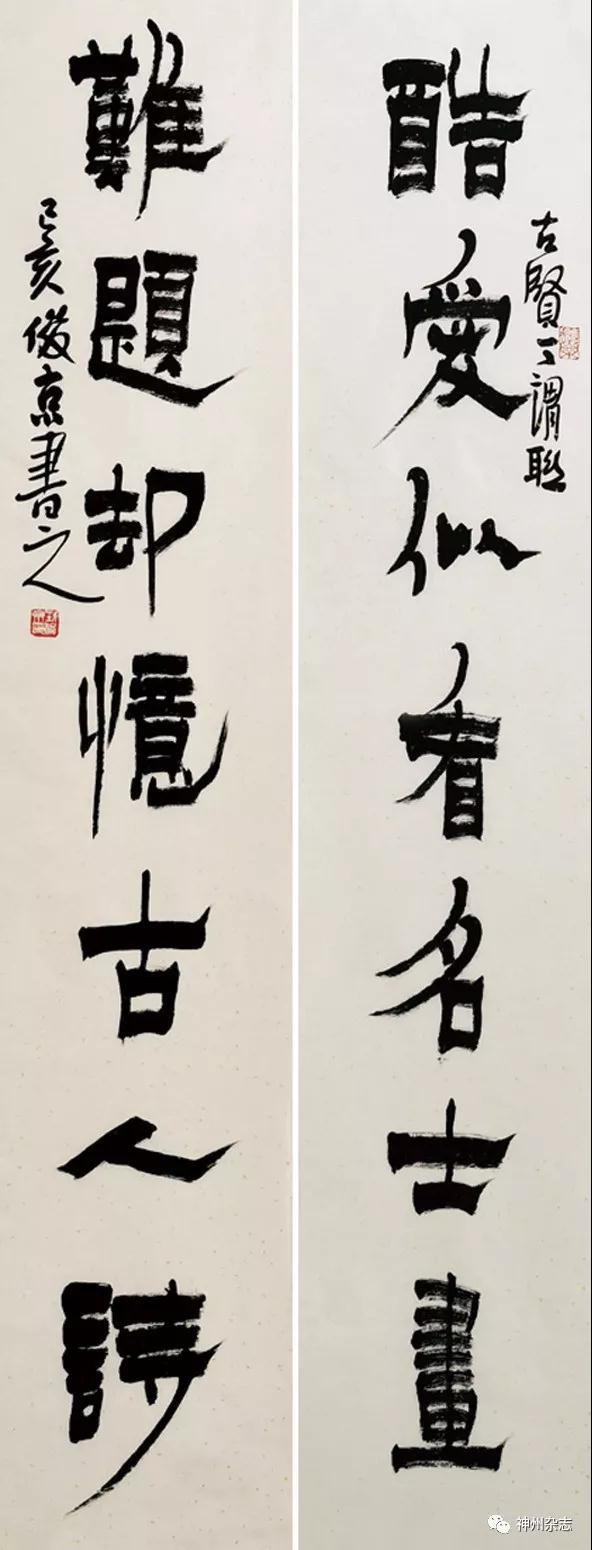 酷愛似看名士畫
古賢丁謂聯
難題却憶古人詩
己亥俊京書之
神州杂志